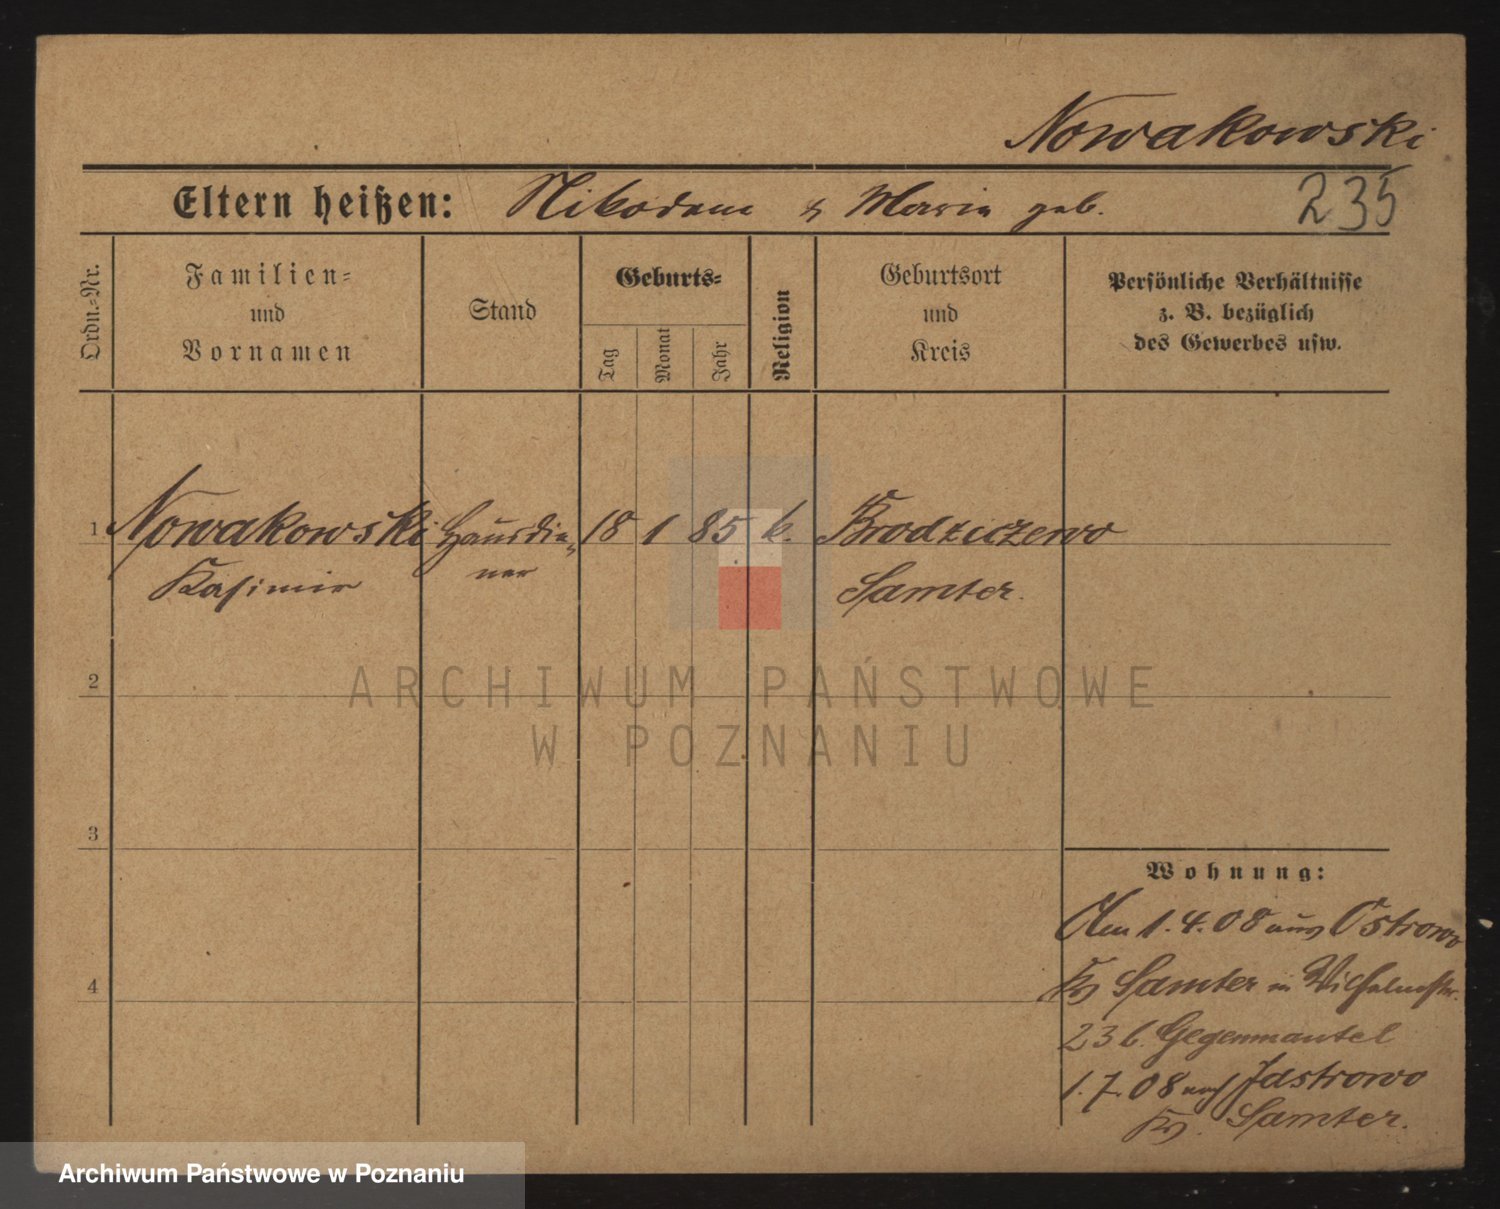 Nowakowski
Eltern heißen: Nikodem & Maria geb.
235
Ordn.-Nr.
Familien-
und
Vornamen
Stand
Geburts-
Tag
Monat
Jahr
Religion
Geburtsort
und
Kreis
Persönliche Verhältnisse
z. B. bezüglich
des Gewerbes usw.
1 Nowakowski Hausdie- 18 1 85 k. Brodziczewo
Kasimir ner Samter.
2
3
4
Wohnung:
Am 1.4.08 aus Ostrowo
Kr Samter in Wilhelmstr.
23 b. Gegenmantel
1.7.08 nach Jastrowo
Kr. Samter.
ARCHIWUM PAŃSTWOWE
W POZNANIU
Archiwum Państwowe w Poznaniu